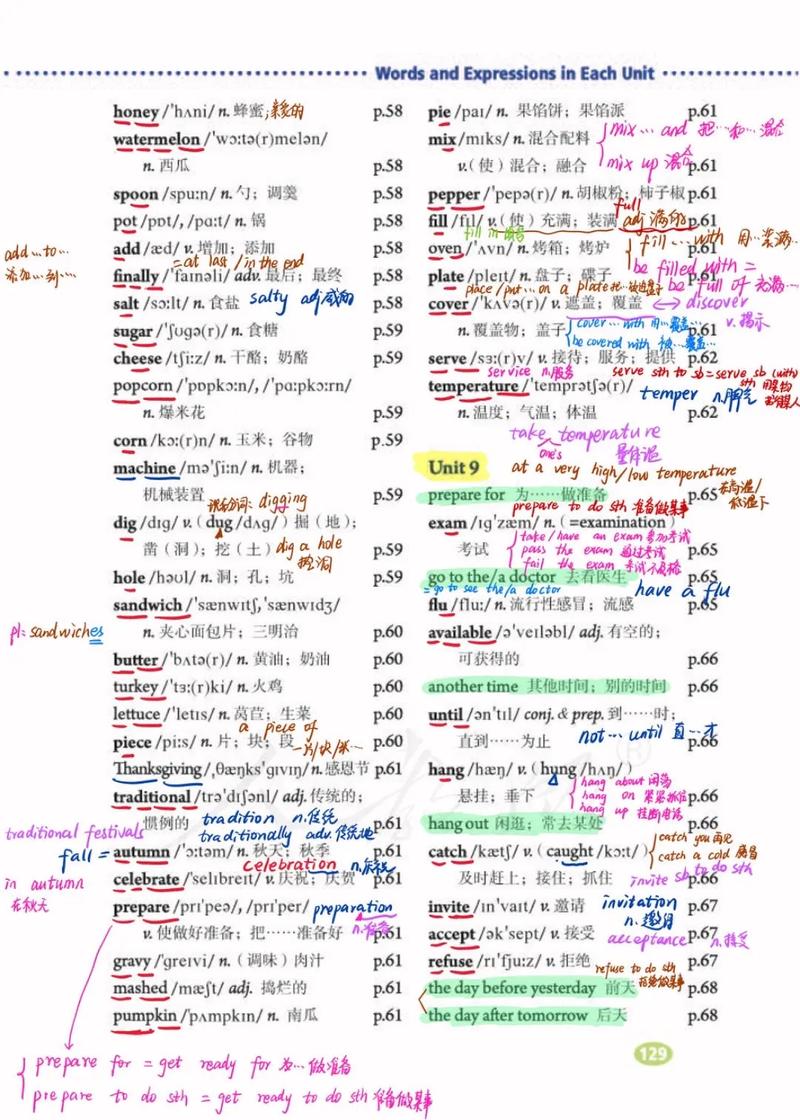 Words and Expressions in Each Unit
honey /'hʌni/ n. 蜂蜜;亲爱的 p.58
watermelon /'wɔːtə(r)melən/
n. 西瓜 p.58
spoon /spuːn/ n. 勺；调羹 p.58
pot /pɒt/, /pɑːt/ n. 锅 p.58
add /æd/ v. 增加；添加 p.58
add…to…
添加…到…
=at last / in the end
finally /'faɪnəli/ adv. 最后；最终 p.58
salt /sɔːlt/ n. 食盐 salty adj.咸的 p.58
sugar /'ʃʊgə(r)/ n. 食糖 p.59
cheese /tʃiːz/ n. 干酪；奶酪 p.59
popcorn /'pɒpkɔːn/, /'pɑːpkɔːrn/
n. 爆米花 p.59
corn /kɔː(r)n/ n. 玉米；谷物 p.59
machine /mə'ʃiːn/ n. 机器；
机械装置 p.59
现在分词: digging
dig /dɪg/ v. (dug /dʌg/) 掘（地）；
凿（洞）；挖（土） dig a hole p.59
挖洞
hole /həʊl/ n. 洞；孔；坑 p.59
sandwich /'sænwɪtʃ, 'sænwɪdʒ/
pl: sandwiches
n. 夹心面包片；三明治 p.60
butter /'bʌtə(r)/ n. 黄油；奶油 p.60
turkey /'tɜː(r)ki/ n. 火鸡 p.60
lettuce /'letɪs/ n. 莴苣；生菜 p.60
a piece of
piece /piːs/ n. 片；块；段 一片/块/张… p.60
Thanksgiving /ˌθæŋks'gɪvɪŋ/ n. 感恩节 p.61
traditional /trə'dɪʃənl/ adj. 传统的；
惯例的 tradition n.传统 p.61
traditional festivals
traditionally adv.传统地
fall =
autumn /'ɔːtəm/ n. 秋天；秋季 p.61
celebration n.庆祝
celebrate /'selɪbreɪt/ v. 庆祝；庆贺 p.61
in autumn
在秋天
prepare /prɪ'peə/, /prɪ'per/ preparation
n.准备
v. 使做好准备；把……准备好 p.61
gravy /'greɪvi/ n.（调味）肉汁 p.61
mashed /mæʃt/ adj. 捣烂的 p.61
pumpkin /'pʌmpkɪn/ n. 南瓜 p.61
prepare for = get ready for 为…做准备
prepare to do sth = get ready to do sth 准备做某事
pie /paɪ/ n. 果馅饼；果馅派 p.61
mix /mɪks/ n. 混合配料
mix… and 把…和…混合
v.（使）混合；融合 p.61
mix up 混合
pepper /'pepə(r)/ n. 胡椒粉；柿子椒 p.61
full
adj 满的
fill /fɪl/ v.（使）充满；装满 p.61
fill in 填写
oven /'ʌvn/ n. 烤箱；烤炉 p.61
fill … with 用…装满…
plate /pleɪt/ n. 盘子；碟子 p.61
be filled with =
be full of 充满…
place / put … on a plate 把…放进盘子
cover /'kʌvə(r)/ v. 遮盖；覆盖 ↔ discover
v.揭示
n. 覆盖物；盖子 p.61
cover … with 用…覆盖…
be covered with 被…覆盖…
serve /sɜː(r)v/ v. 接待；服务；提供 p.62
service n.服务
serve sth to sb = serve sb (with) sth
temperature /'temprətʃə(r)/
temper n.脾气
n. 温度；气温；体温 p.62
take one's temperature
量体温
Unit 9
at a very high/low temperature
在高温/
低温下
prepare for 为……做准备 p.65
prepare to do sth 准备做某事
exam /ɪg'zæm/ n. (=examination)
考试 p.65
take / have an exam 参加考试
pass the exam 通过考试
fail the exam 考试不及格
go to the/a doctor 去看医生 p.65
= go to see the/a doctor
have a flu
flu /fluː/ n. 流行性感冒；流感 p.65
available /ə'veɪləbl/ adj. 有空的；
可获得的 p.66
another time 其他时间；别的时间 p.66
until /ən'tɪl/ conj. & prep. 到……时；
直到……为止 p.66
not… until 直…才
hang /hæŋ/ v. (hung /hʌŋ/)
悬挂；垂下 p.66
hang about 闲荡
hang on 紧紧抓住
hang up 挂断电话
hang out 闲逛；常去某处 p.66
catch /kætʃ/ v. (caught /kɔːt/)
catch you 再见
catch a cold 感冒
及时赶上；接住；抓住 p.66
invite sb to do sth
invite /ɪn'vaɪt/ v. 邀请 p.67
invitation
n.邀请
accept /ək'sept/ v. 接受 p.67
acceptance n.接受
refuse /rɪ'fjuːz/ v. 拒绝 p.67
refuse to do sth
拒绝做某事
the day before yesterday 前天 p.68
the day after tomorrow 后天 p.68
129